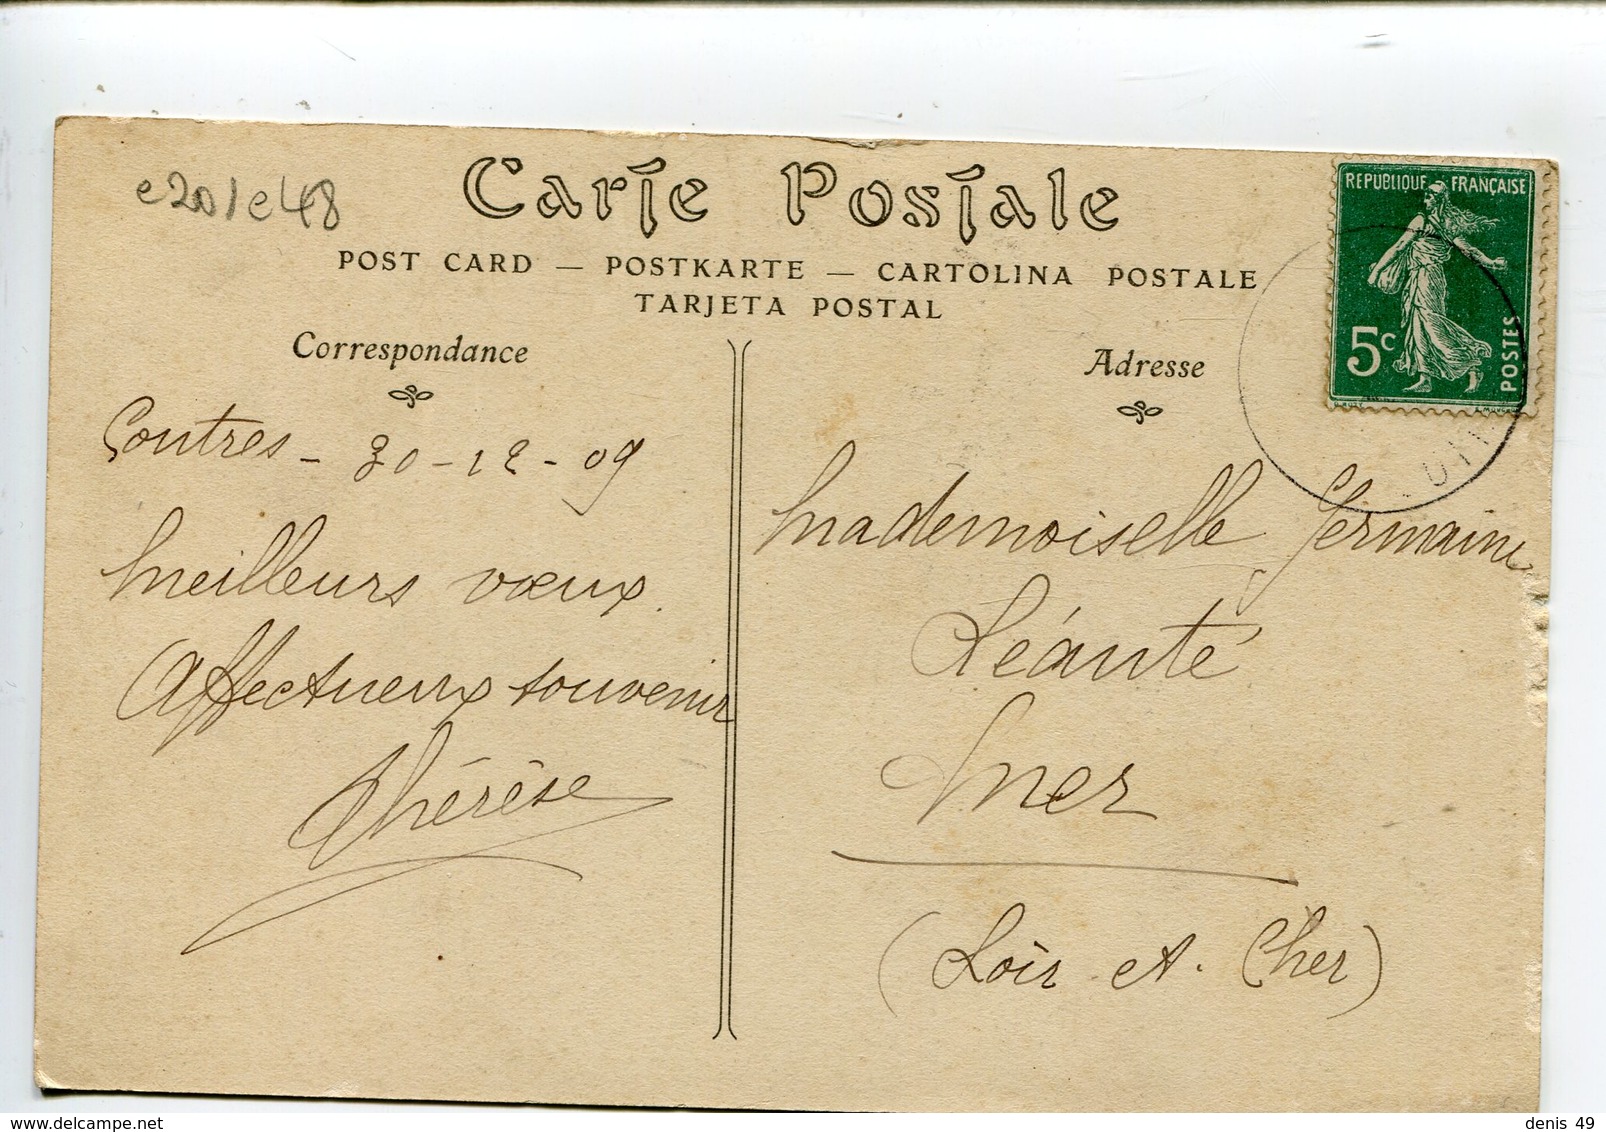 e20/e48
Carte Postale
POST CARD — POSTKARTE — CARTOLINA POSTALE
TARJETA POSTAL
Correspondance
Contres - 30-12-09
Meilleurs vœux.
Affectueux souvenir
Thérèse
Adresse
Mademoiselle Germaine
Léauté
Mer
(Loir et. Cher)
REPUBLIQUE FRANÇAISE
5c
POSTES
denis 49